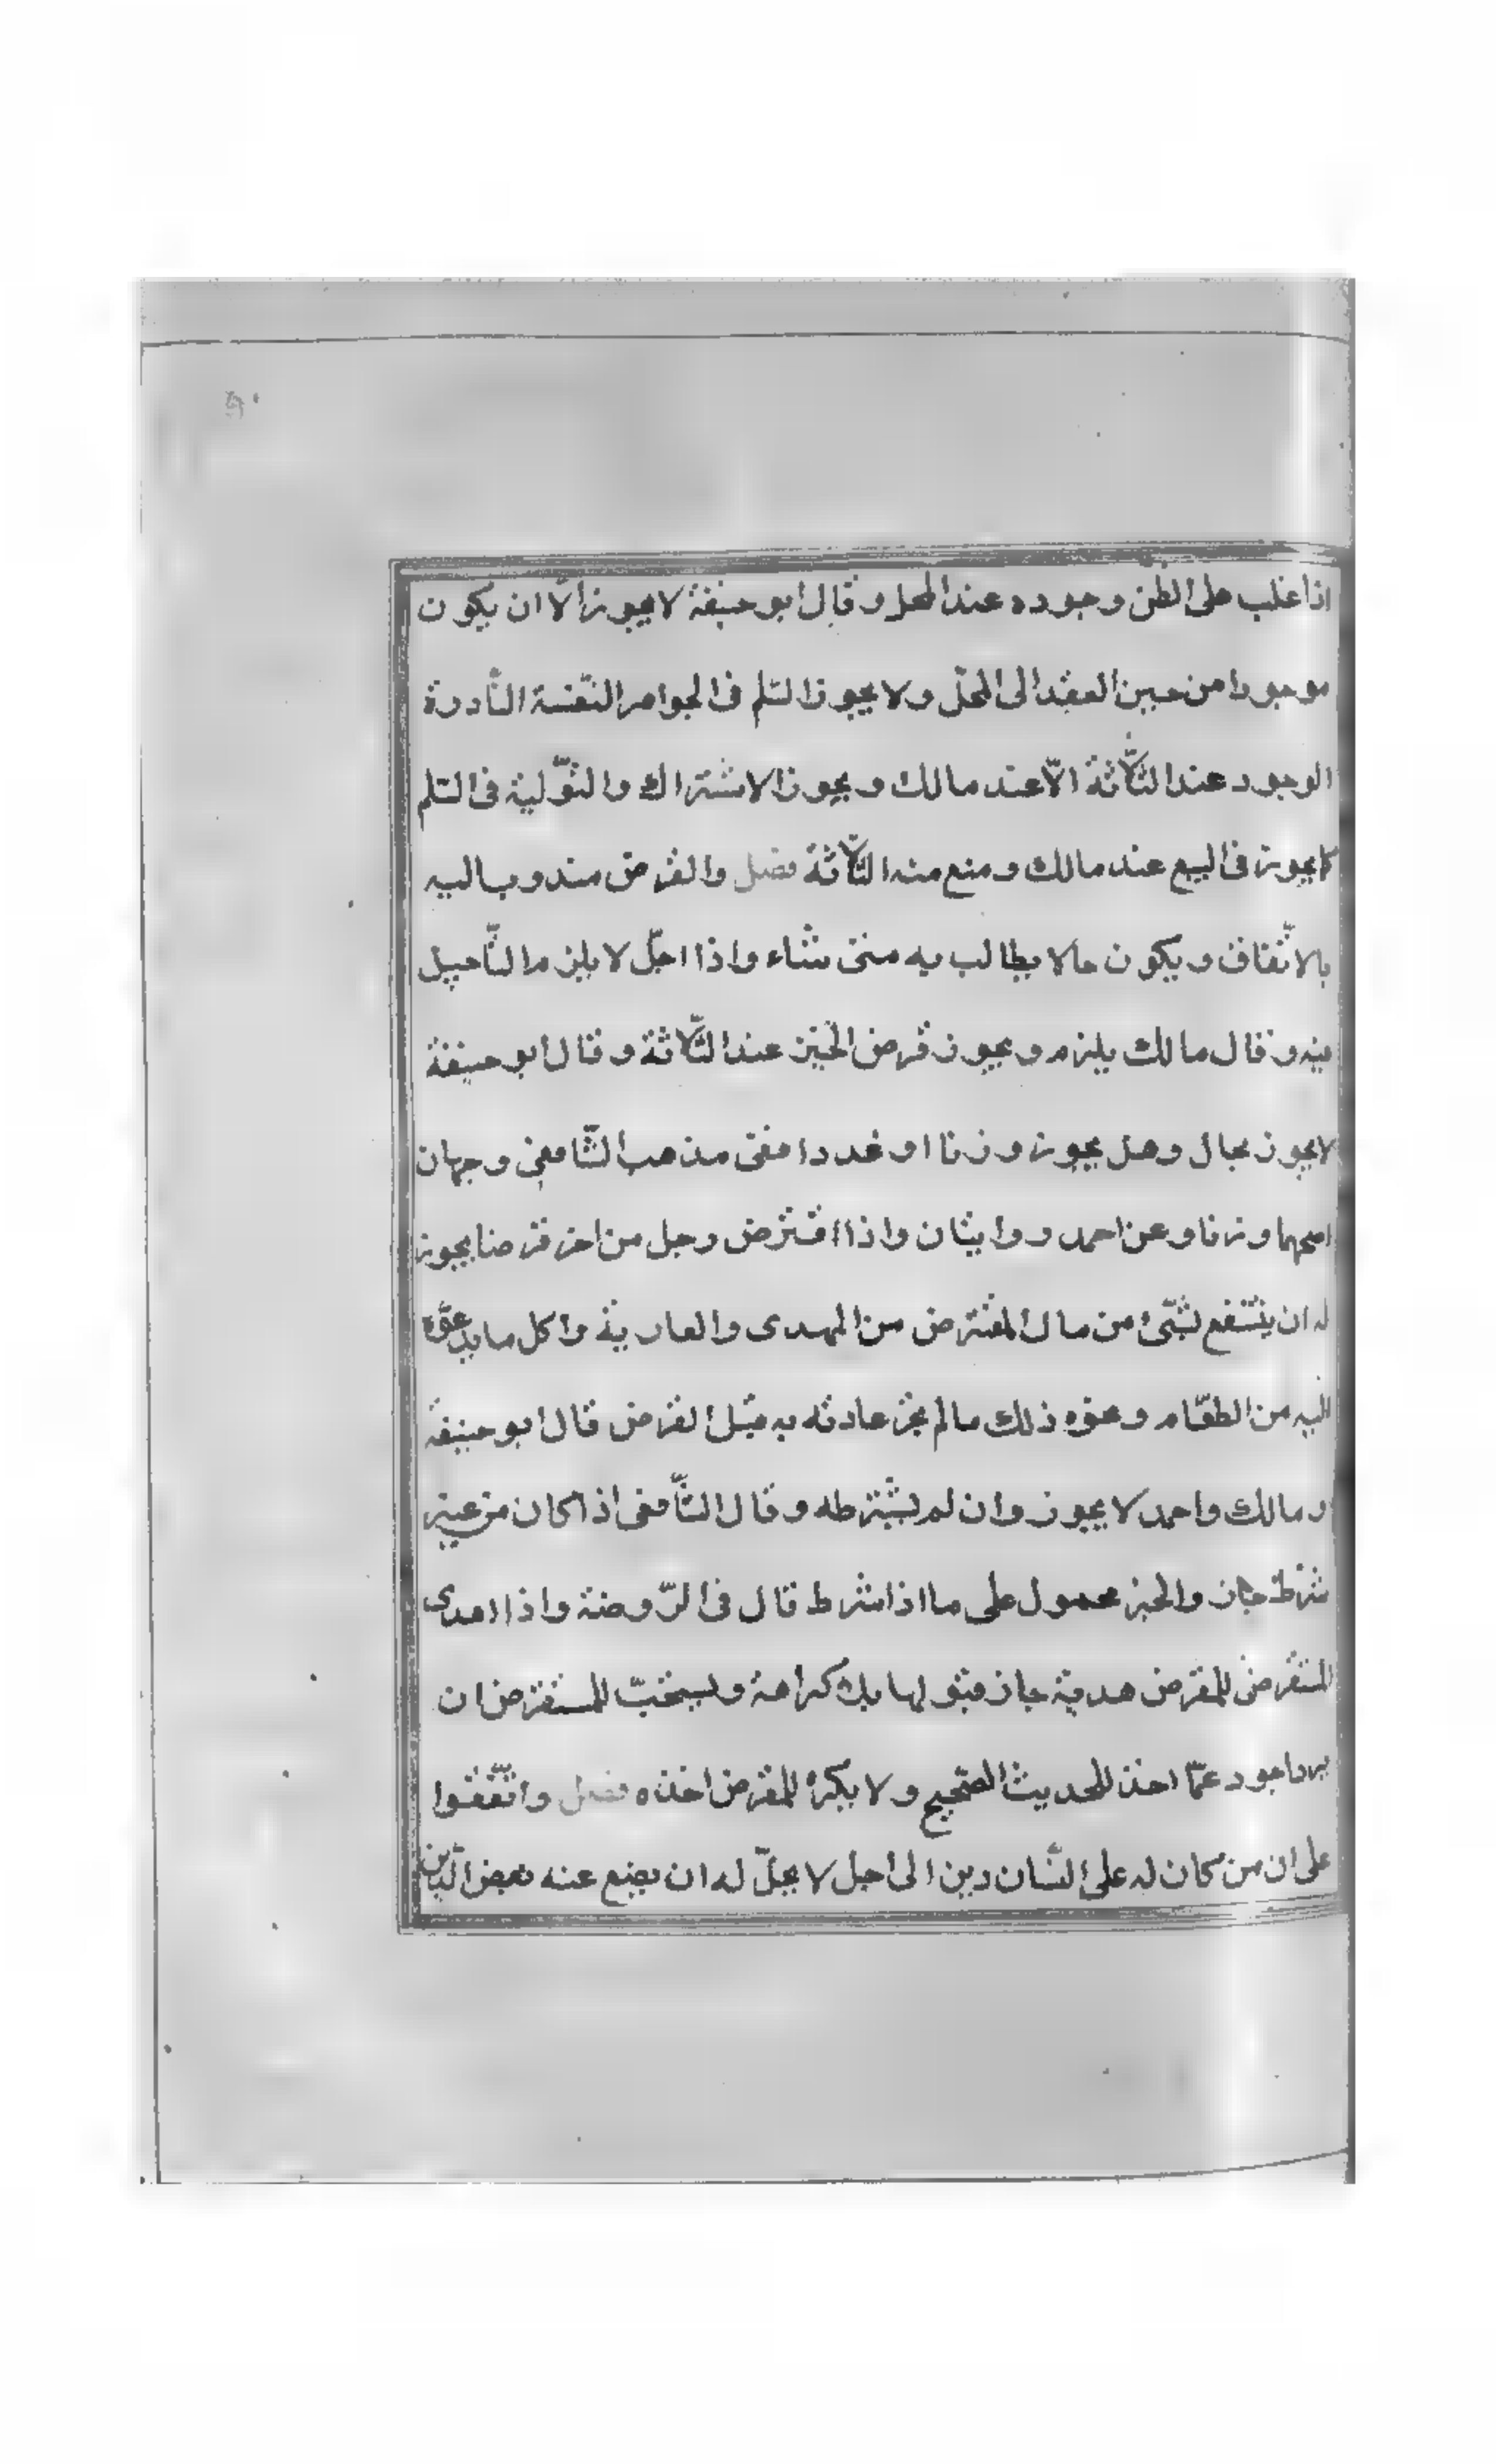 اذا غلب على الظن وجوده عند المحل وقال ابو حنيفة لا يجوز الّا ان يكون
موجودا من حين العقد الى المحلّ ولا يجوز السّلم فى الجواهر النّفسة النّادرة
الوجود عند الثّلاثة الّا عند مالك ويجوز الاشتراك والتّولية فى السّلم
كما يجوز فى البيع عند مالك ومنع منه الثّلاثة فصل والقرض مندوب اليه
بالاتّفاق ويكون حالا يطالب به متى شاء واذا اجّل لا يلزم التّأجيل
فيه وقال مالك يلزم ويجوز قرض الخبز عند الثّلاثة وقال ابو حنيفة
لا يجوز بحال وهل يجوز وزنا او عددا ففى مذهب الشّافعى وجهان
اصحهما وزنا وعن احمد روايتان واذا اقترض رجل من اخر قرضا يجوز
له ان ينتفع بشئ من مال المقترض من الهدى والعارية واكل ما يدعوه
اليه من الطعّام ونحوه ذلك مالم تجز عادته به قبل القرض قال ابو حنيفة
ومالك واحمد لا يجوز وان لم يشترطه وقال الشّافعى اذا كان من غير
شرط جاز والخبر محمول على ما اذا شرط قال فى الرّوضة واذا اهدى
المستقرض للمقرض هدية جاز قبولها بلا كراهة ويستحبّ للمستقرض ان
يرد اجود عمّا اخذ للحديث الصّحيح ولا يكره للمقرض اخذه فصل واتّفقوا
على ان من كان له على انسان دين الى اجل لا يحلّ له ان يضع عنه بعض الّدين